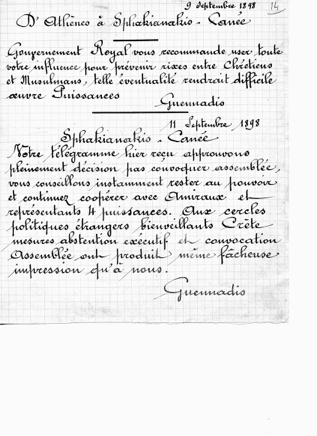 9 septembre 1898
14
D'Athènes à Sphakianakio - Canée
Gouvernement Royal vous recommande user toute
votre influence pour prévenir rixes entre Chrétiens
et Musulmans, telle éventualité rendrait difficile
œuvre Puissances
Guennadis
11 Septembre 1898
Sphakianakio - Canée
Notre télégramme hier reçu approuvons
pleinement décision pas convoquer assemblée,
vous conseillons instamment rester au pouvoir
et continuez coopérer avec Amiraux et
représentants 4 puissances. Aux cercles
politiques étrangers bienveillants Crète
mesures abstention exécutif et convocation
Assemblée ont produit même fâcheuse
impression qu'à nous.
Guennadis